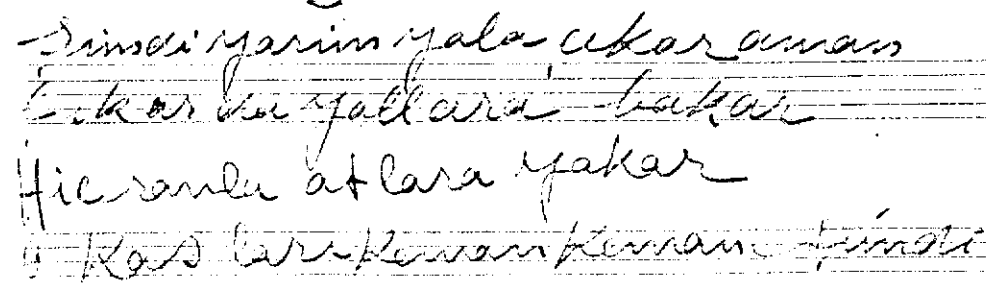 Şimdi yarim yola çıkar aman
Çıkar da yollara bakar
Hicranla atlara yakar
O Kaşları Keman Keman şimdi